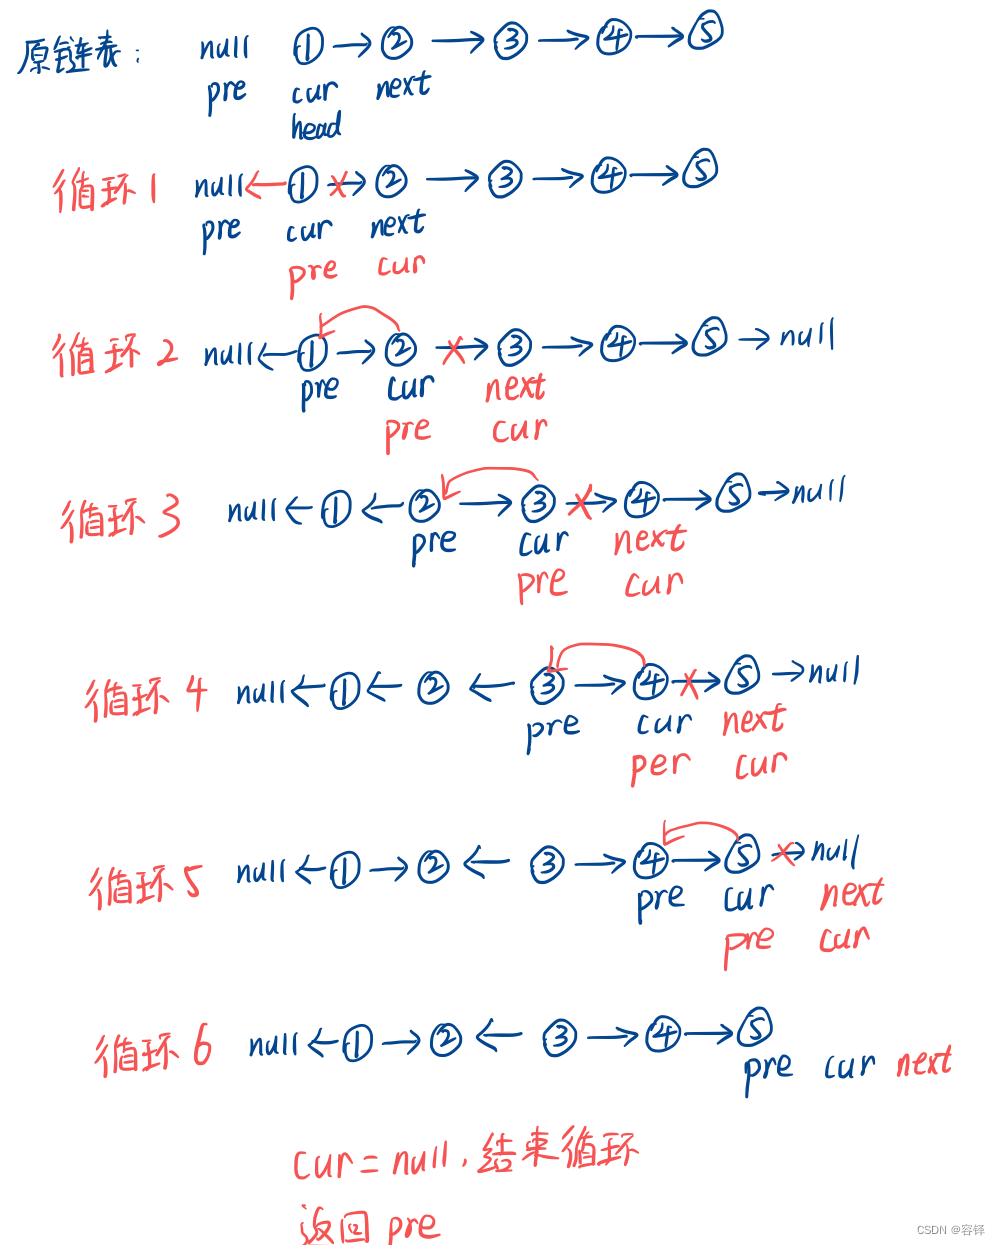 原链表： null ① → ② → ③ → ④ → ⑤
pre cur next
head
循环1 null ← ① → ② → ③ → ④ → ⑤
pre cur next
pre cur
循环2 null ← ① → ② → ③ → ④ → ⑤ → null
pre cur next
pre cur
循环3 null ← ① ← ② → ③ → ④ → ⑤ → null
pre cur next
pre cur
循环4 null ← ① ← ② ← ③ → ④ → ⑤ → null
pre cur next
per cur
循环5 null ← ① → ② ← ③ → ④ → ⑤ → null
pre cur next
pre cur
循环6 null ← ① → ② ← ③ → ④ → ⑤
pre cur next
cur = null，结束循环
返回 pre
CSDN @容铎